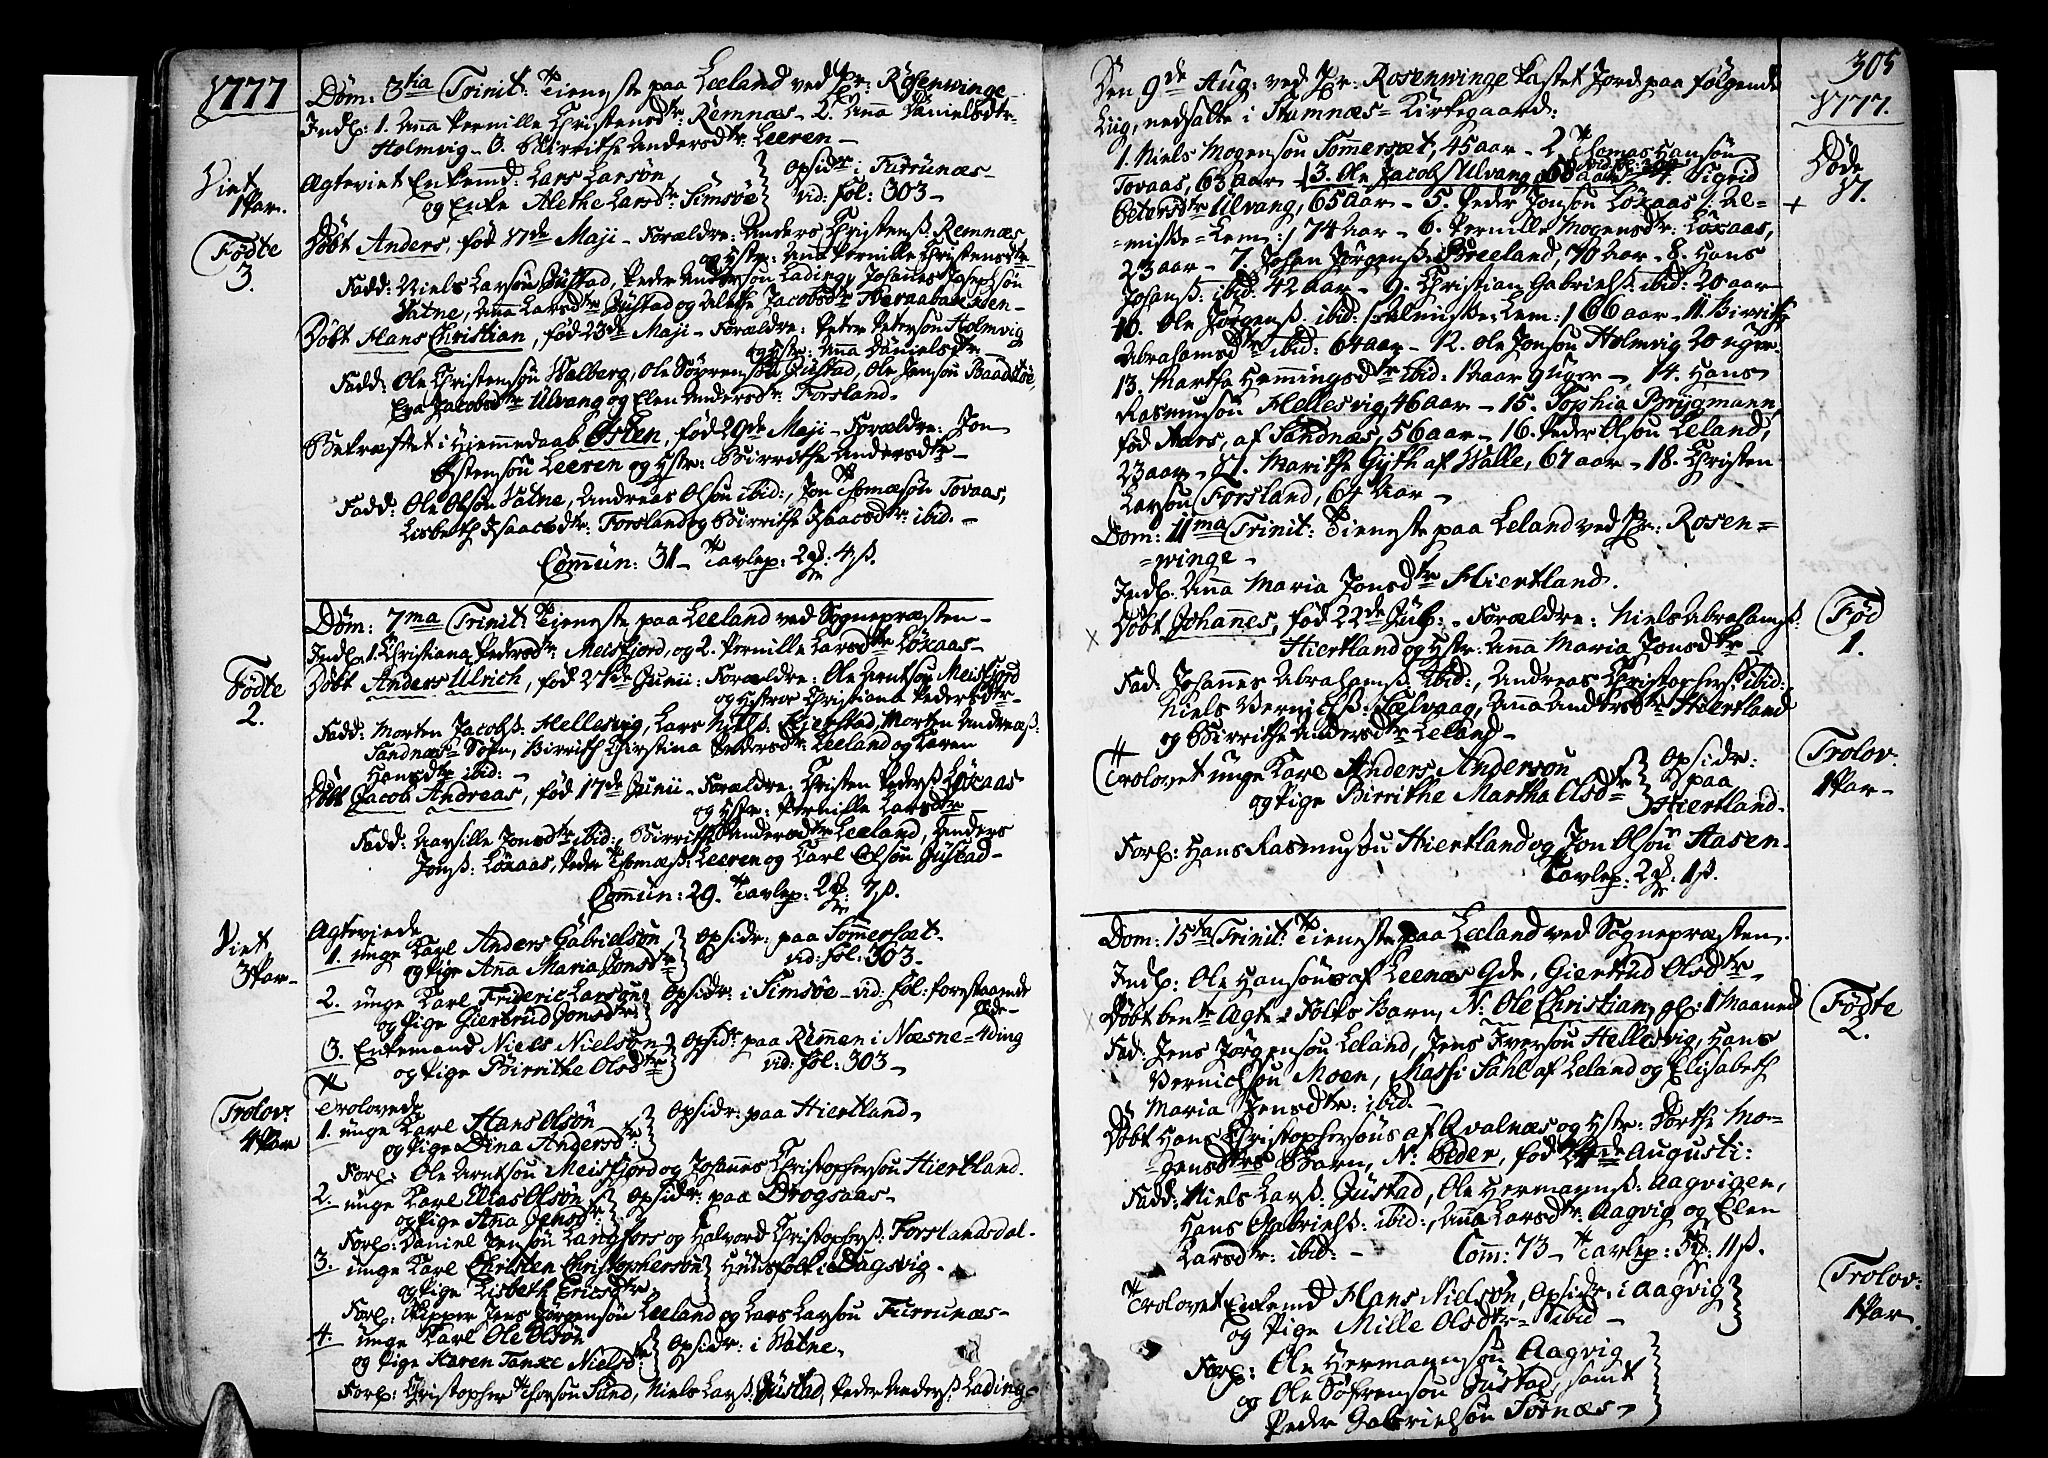 1777
Dom: 3tia Trinit: Tieneste paa Leeland ved Pr: Rosenwinge
Indl: 1. Anna Pernille Christensdtr: Remnæs - 2. Anna Danielsdtr
Holmvig - 3. Birrithe Andersdtr Leeren -
Viet
1 Par.
Ægteviet Enkemd: Lars Larsøn
og Enke Alethe Larsdtr: Simsøe
opsidr: Furrunæs -
vid: fol: 303 -
Fødte
3.
Døbt Anders, fød 17de Maji - Forældre: Anders Christens: Remnæs
og Hstr: Ana Pernille Christensdtr
Fadd: Niels Larsøn Jüstad, Peder Andersøn Lading, Johannes
Vatne, Anna Larsdtr Jüstad og Alethe Jacobsdtr
Døbt Hans Christian, fød 23de Maji - Forældre: Peter Petersøn Holmvig
og Hstr: Anna Danielsdtr
Fadd: Ole Christensøn Walberg, Ole Sørensøn Jüstad, Ole Jensøn
Eva Jacobsdtr Ulvang og Elen Andersdtr: Forsland.
Bekræftet i Hiemmedaab Østen, fød 29de Maji - Forældre: Jon
Østensøn Leeren og Hstr: Birrithe Andersdtr -
Fadd: Ole Olsøn Vatne, Andreas Olsøn ibid:, Jon Thomæsøn Tovaas,
Lisbeth Isaacsdtr: Forsland og Birrithe Isaacsdtr: ibid. -
Commün: 31 - Tavlep: 2 4 ß.
Dom: 7ma Trinit: Tieneste paa Leeland ved Sognepræsten -
Indl: 1. Christiana Pedersdtr: Meisfjord, og 2. Pernille Larsdtr Løkaas -
Fødte
2.
Døbt Anders Ulrich, fød 27de Junii - Forældre: Ole Arntsøn Meisfjord
og Hstr Christiana Pedersdtr -
Fadd: Morten Jacobs: Hellesvig, Lars Niels: Morten Andreæs:
Sandnæs, Birrith Christina Pedersdtr: Leeland og Karen
Hansdtr ibid: -
Døbt Jacob Andreas, fød 17de Junii - Forældre: Christen Peders: Løkaas
og Hstr: Pernille Larsdtr -
Fadd: Marsille Jonsdtr ibid:, Birrithe Andersdtr Leeland, Anders
Jons: Løkaas, Peder Thomæs: Leeren og Carl Olsøn Jüstad -
Commün: 29. Tavlep: 2 7 ß.
Viet
3 Par -
Ægteviede
1. unge Karl Anders Gabrielsøn
og Pige Anna Maria Jonsdtr
Opsidr: paa Sommersæt -
vid: fol: 303 -
2. unge Karl Frideric Larsøn
og Pige Giertrud Jonsdtr
Opsidr: i Simsøe - vid: fol: forestaaende
Side -
3. Enkemand Niels Nielsøn
og Pige Birrithe Olsdtr
Opsidr: paa Remmen i Næsne-Fding
vid: fol: 303 -
Trolov:
4 Par
Trolovede
1. unge Karl Hans Olsøn
og Pige Dina Andersdtr:
Opsidr: paa Hiertland -
Forl: Ole Arntsøn Meisfjord og Johannes Christophersøn Hiertland.
2. unge Karl Elias Olsøn
og Pige Ana Jensdtr:
opsidr: paa Drogsaas -
Forl: Daniel Jensøn Langfors og Halvord Christophers: Forslandsdal -
3. unge Karl Christen Christophersøn
og Pige Lisbeth Ericsdtr
Huusfolk i Dagsvig -
Forl: Skipper Jens Jørgensøn Leeland og Lars Larsøn Furrunæs -
4. unge Karl Ole Olsøn
og Pige Karen Tanke Nielsdtr
Opsidr: i Vatne.
Forl: Christopher Thorsøn Sund, Niels Lars: Jüstad, Peder Anders: Lading -
305
1777.
Den 9de Aug: ved Pr: Rosenwinge kastet Jord paa følgende
Liig, nedsatte i Stamnæs-Kirkegaard:
Døde
17.
1. Niels Mogensøn Somersæt, 45 aar - 2. Thomas Hansøn
Tovaas, 63 aar - 3. Ole Jacobs: Ulvang, 68 aar - 4. Sigrid
Petersdtr Ulvang, 65 aar - 5. Peder Jonsøn Løkaas /: Al-
+
misse-Lem:/ 74 aar - 6. Pernille Mogensdtr: Løkaas,
23 aar - 7. Johan Jørgens: Breeland, 70 aar - 8. Hans
Johans: ibid: 42 aar - 9. Christian Gabriels: ibid: 20 aar -
10. Ole Jørgens: ibid: /: Almisse-Lem:/ 66 aar - 11. Birrithe
Abrahamsdtr ibid: 64 aar - 12. Ole Jonsøn Holmvig 20 uger
13. Martha Hemmingsdtr ibid: 1 aar 9 uger - 14. Hans
Rasmusøn Hellesvig 46 aar - 15. Sophia Brügmann
fød Aars, af Sandnæs, 56 aar - 16. Peder Olsøn Leland,
23 aar - 17. Marithe Gjth af Walle, 67 aar - 18. Christen
Larsøn Forsland, 64 Aar -
Dom: 11ma Trinit: Tieneste paa Leland ved Pr: Rosen-
winge -
Indl: Anna Maria Jonsdtr Hiertland.
Fød
1.
x
Døbt Johannes, fød 22de Jül: - Forældre: Niels Abrahams:
Hiertland og Hstr: Anna Maria Jonsdtr -
Fad: Johannes Abrahams: ibid:, Andreas Christophers: ibid:
Niels Vernichs: Sælvaag, Anna Andersdtr Hiertland
og Birrithe Andersdtr Leland -
Trolov:
1 Par -
Trolovet unge Karl Anders Andersøn
og Pige Birrithe Martha Olsdtr
opsidr:
paa
Hiertland -
Forl: Hans Rasmusøn Hiertland og Jon Olsøn Aasen -
Tavlep: 2 1 ß.
Dom: 15ta Trinit: Tieneste paa Leeland ved Sognepræsten -
Indl: Ole Hansøns af Leenæs Qde, Giertrud Olsdtr -
Fødte
2.
x
Døbt bente Ægte-Folks Barn, N: Ole Christian, gl: 1 Maaned
Fad: Jens Jørgensøn Leland, Jens Iversøn Hellesvig, Hans
Vernichsøn Moen, Massi Sahl af Leland og Elisabeth
Maria Jensdtr: ibid. -
Døbt Hans Christophersøns af Qvalnæs og Hstr: Dorthe Mo-
gensdtrs Barn, N: Peder, fød de Augusti:
Fadd: Niels Lars: Jüstad, Ole Hermans: Aagvigen,
Hans Gabriels: ibid:, Anna Larsdtr: Aagvig og Elen
Larsdtr: ibid: - Com: 73 - Tavlep: 5 11 ß.
Trolov:
1 Par.
Trolovet Enkemd Hans Nielsøn, Opsidr: i Aagvig
og Pige Mille Olsdtr - ibid -
Forl: Ole Hermansøn Aagvig
og Ole Søfrensøn Jüstad, samt
Peder Gabrielsøn Sørnæs -